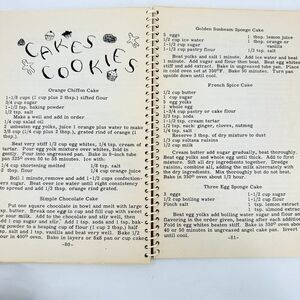 CAKES
COOKIES
Orange Chiffon Cake
1-1/8 cups (1 cup plus 2 tbsp.) sifted flour
3/4 cup sugar
1-1/2 tsp. baking powder
1/2 tsp. salt
Make a well and add in order
1/4 cup salad oil
2 unbeaten egg yolks, juice 1 orange plus water to make
3/8 cup (1/4 cup plus 2 tbsp.), grated rind of orange (1
Beat very stiff 1/2 cup egg whites, 1/4 tsp. cream of
tartar. Pour egg yolk mixture over whites, fold in
gently. Pour into ungreased pan. Bake in 9-inch tube
pan 325° oven 50 to 55 minutes
1/4 cup shortening melted 1/8 tsp. salt
2 tbsp. flour 1/4 cup orange juice
Boil 1 minute, remove and add 1-1/2 cup confectioners
sugar. Beat over ice water until right consistency
to spread and add 1/2 tbsp. orange rind grated.
Simple Chocolate Cake
Put one square chocolate in bowl and melt with large
butter. Break one egg in cup and fill cup with sweet
or sour milk. Add to the chocolate and stir well, then
add 1 cup sugar and stir. Add 1 tsp. soda and 1 tsp. bak-
ing powder to a heaping cup of flour (1 cup 2 tbsp.) half
tsp. salt and vanilla and beat very well. Bake 1/2
hour in 350° oven. Bake in layers or 8x8 pan or cup cakes
-80-
Golden Sunbeam Sponge Cake
5 eggs 1 tbsp. lemon juice
1/2 cup ice water 1 tsp. orange or
1-1/2 cup sugar vanilla
1-1/2 cup flour 1/2 tsp. salt
Beat yolks and salt 1 minute. Add ice water and beat 1
minute. Add sugar and flour then beat. Beat egg whites
stiff and add extract. Bake in ungreased tube pan. Place
in cold oven set at 350°F. Bake 50 minutes. Turn pan
upside down until cool.
French Spice Cake
1/2 cup butter
1 cup sugar
3 egg yolks
1 whole egg
1-3/4 cup pastry or cake flour
1/2 tsp. soda
1-1/2 tsp. cream tartar
1 tsp. each: ginger, cloves, nutmeg
1/4 tsp. salt
Reserve 1/2 tsp. of dry mixture to dust
1/2 cup raisins
1/2 cup milk
Cream butter and sugar gradually, beat thoroughly.
Beat egg yolks and whole egg until thick. Add to first
mixture. Sift all dry ingredients together. Dredge
raisins with reserved flour, add milk alternately with the
dry ingredients. Mix thoroughly but do not beat.
Bake in 350°F oven for 45 minutes.
Three Egg Sponge Cake
3 eggs 1-1/2 cup flour
1/2 cup boiling water 1-1/2 cup sugar
Pinch salt 1 tsp. lemon extract
1 tsp. almond extract
Beat egg yolks add boiling water sugar and flour and
flavoring in the order given, beating after each addition
Fold in egg whites beaten stiff. Bake in 350° oven about
40 or 50 minutes in ungreased angel cake pan. Invert
until cool.
-81-